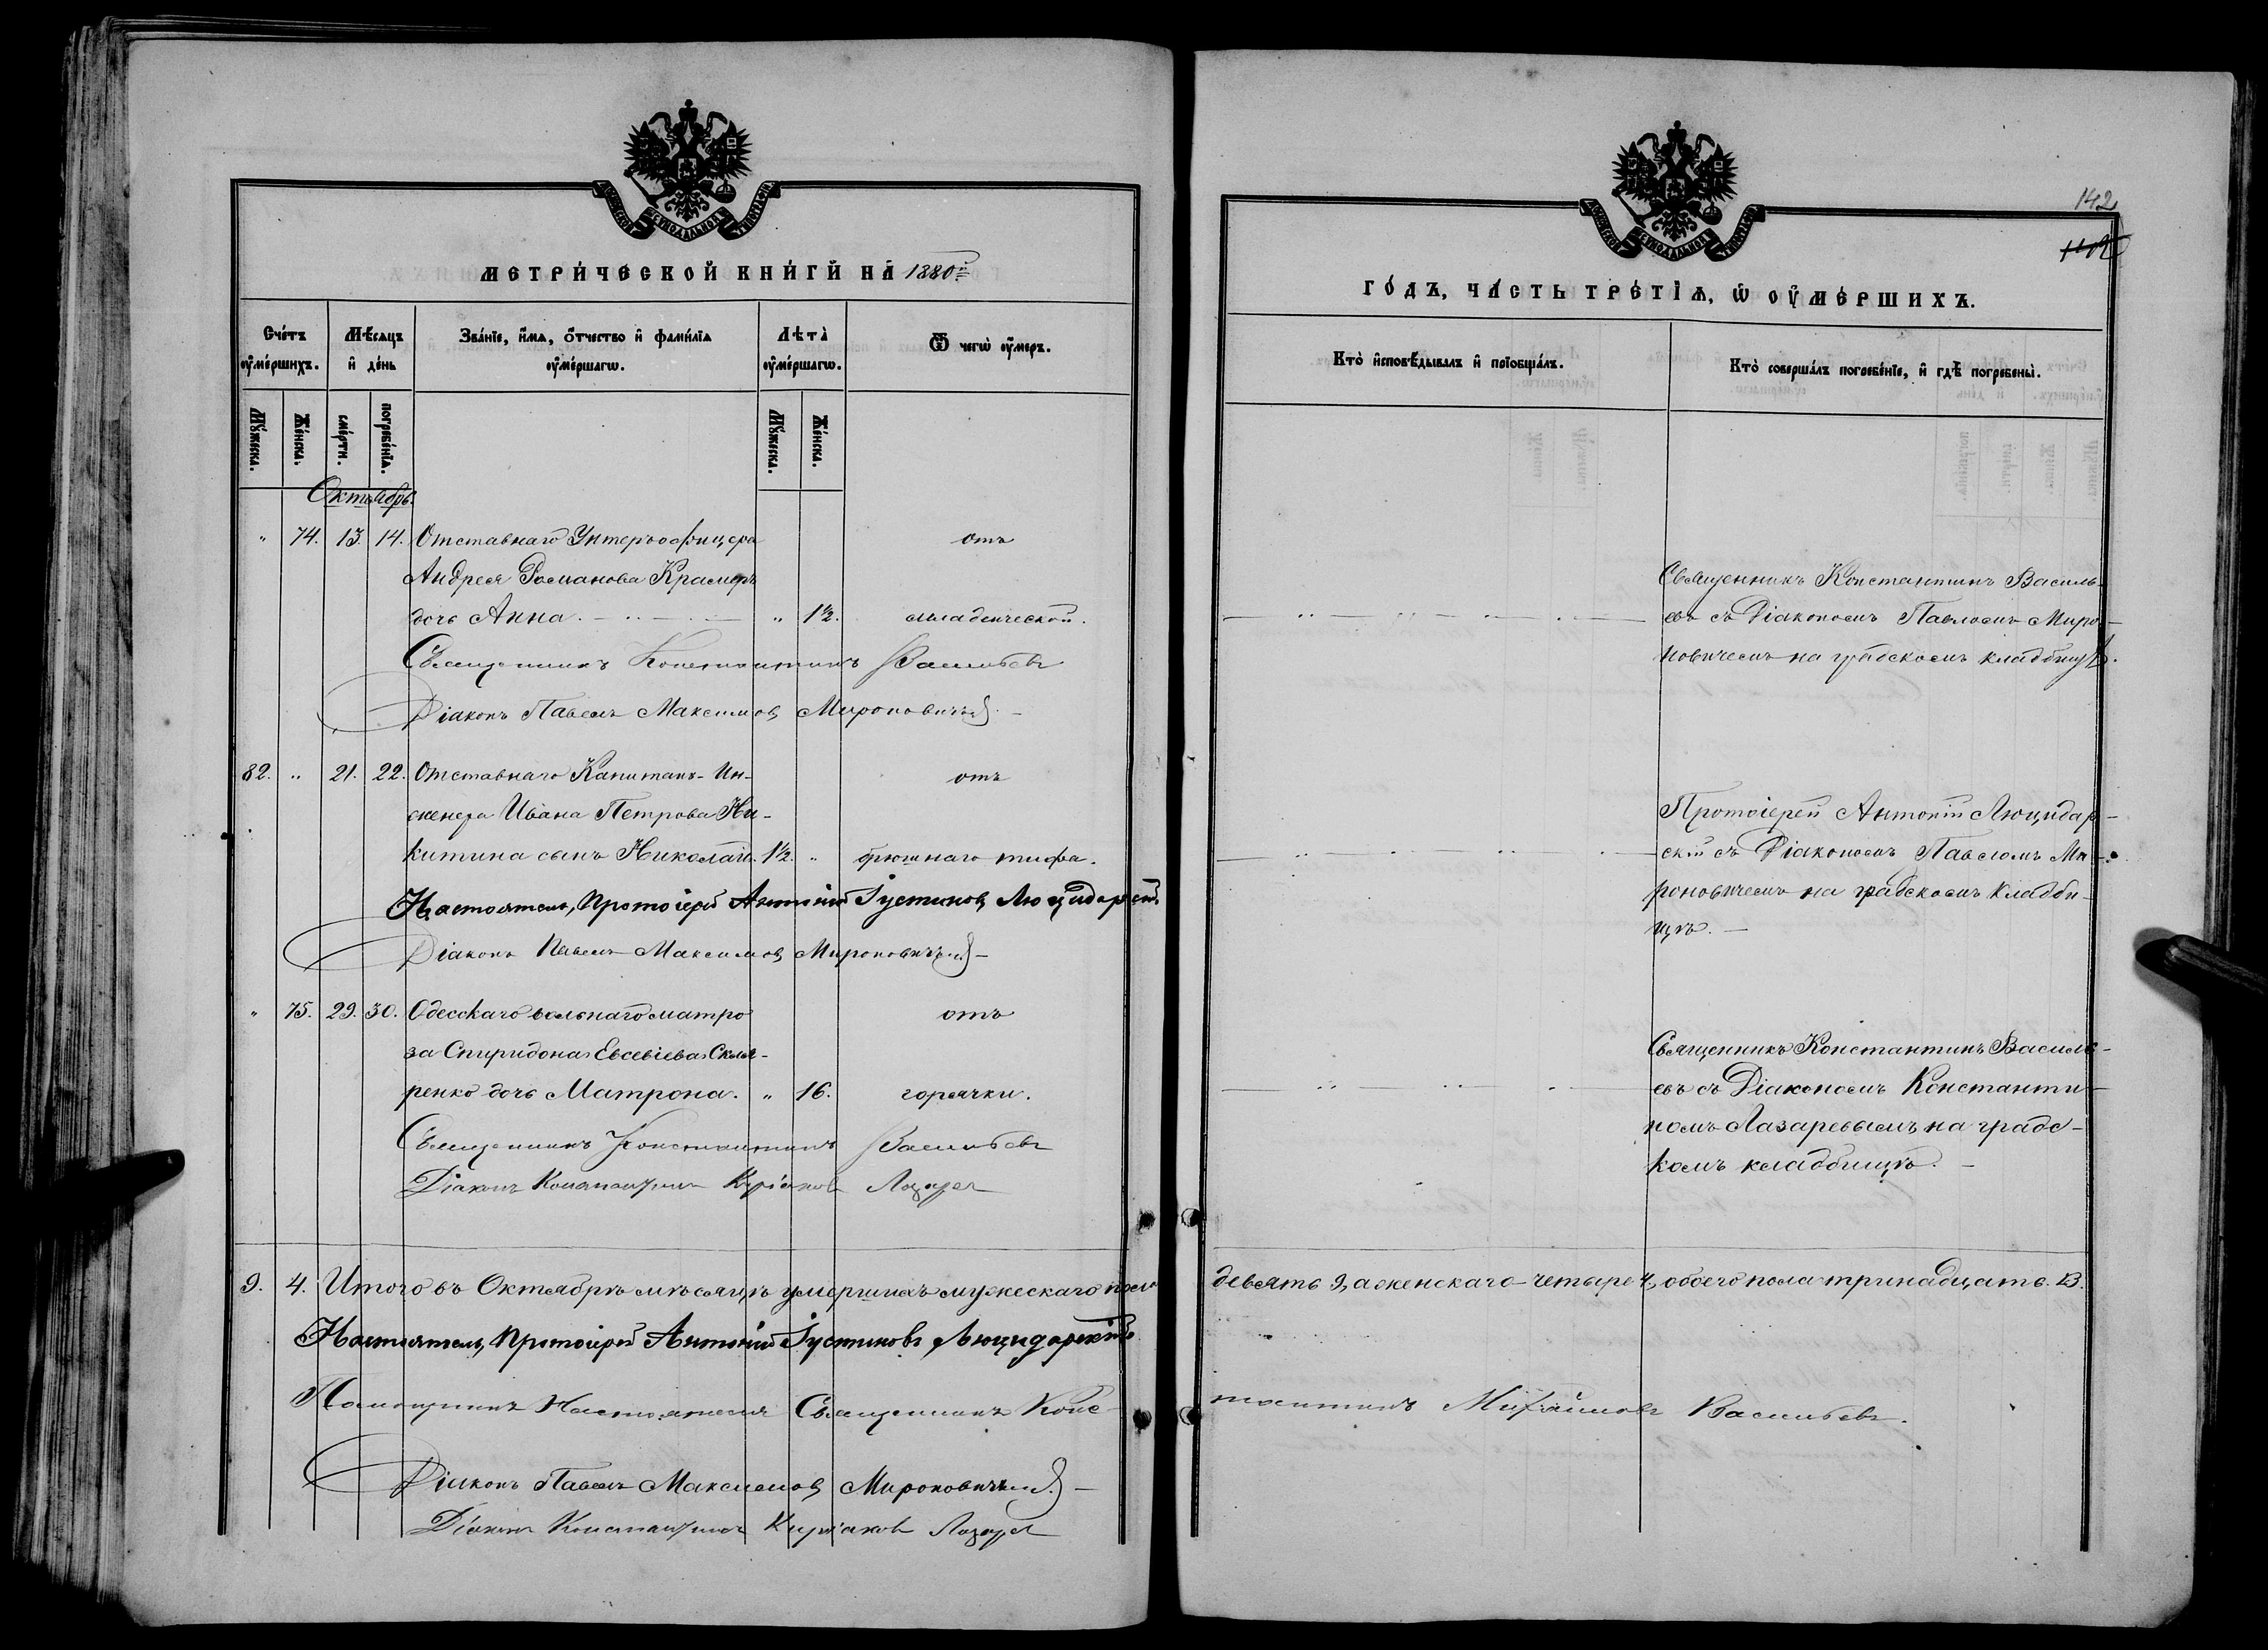 МЕТРИЧЕСКОЙ КНИГИ НА 1880й
Счетъ умершихъ.
Мѣсяцъ и день
Званіе, имя, отчество и фамилія умершагѡ.
Лѣта умершагѡ.
Ѿ чегѡ умеръ.
Мужеска.
Женска.
смерти.
погребенія.
Мужеска.
Женска.
Октябрь.
" 74. 13. 14. Отставнаго Унтеръ-офицера отъ
Андрея Романова Крамеръ
дочь Анна. " 1½. младенческой.
Священникъ Константинъ Васильевъ
Діаконъ Павелъ Максимовъ Мироновичъ
82. " 21. 22. Отставнаго Капитанъ-Ин- отъ
женера Ивана Петрова Ни-
китина сынъ Николай. 1½. " брюшнаго тифа.
Настоятель, Протоіерей Антоній Іустиновъ Люцидарскій
Діаконъ Павелъ Максимовъ Мироновичъ
" 75. 29. 30. Одесскаго вольнаго матро отъ
за Спиридона Евсевіева Скля-
ренко дочь Матрона. " 16. горячки.
Священникъ Константинъ Васильевъ
Діаконъ Константинъ Киріаковъ Лазаревъ
9. 4. Итого въ Октябрѣ мѣсяцѣ умершихъ мужескаго пола
Настоятель, Протоіерей Антоній Іустиновъ Люцидарскій
Помощникъ Настоятеля Священникъ Конс-
Діаконъ Павелъ Максимовъ Мироновичъ
Діаконъ Константинъ Киріаковъ Лазаревъ
142
ГОДЪ, ЧАСТЬ ТРЕТІѦ, Ѡ ОУМЕРШИХЪ.
Кто исповѣдывалъ и пріобщалъ.
Кто совершалъ погребеніе, и гдѣ погребены.
Священникъ Константинъ Василь-
евъ съ Діакономъ Павломъ Миро-
новичемъ на градскомъ кладбищѣ.
Протоіерей Антоній Люцидар-
скій съ Діакономъ Павломъ Ми-
роновичемъ на градскомъ кладби-
щѣ.
Священникъ Константинъ Василь-
евъ съ Діакономъ Константи-
номъ Лазаревымъ на градс-
комъ кладбищѣ.
девять 9, а женскаго-четыре 4, обоего пола тринадцать. 13.
тантинъ Михаиловъ Васильевъ.